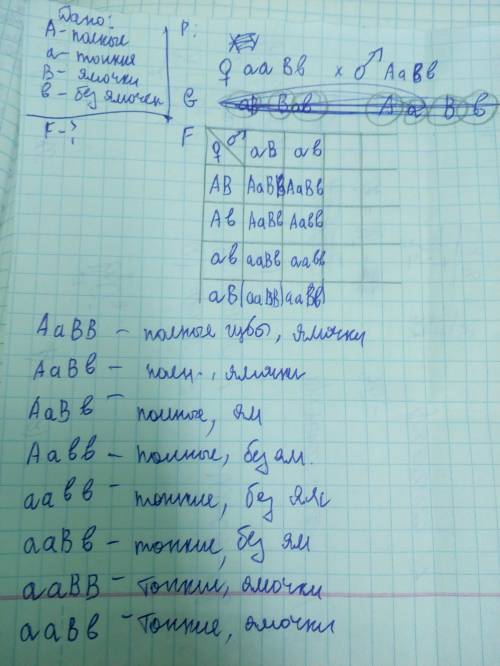 Дано:
A - полные
a - тонкие
B - ямочки
b - без ямочек
F - ?
P:
♀ aa Bb x ♂ AaBb
G aB Bab A a B b
F
♀ ♂ aB ab
AB AaBB AaBb
Ab AaBb Aabb
ab aaBb aabb
aB aaBB aaBb
AaBB - полные губы, ямочки
AaBb - полн., ямочки
AaBb - полные, ям
Aabb - полные, без ям.
aabb - тонкие, без ям
aaBb - тонкие, без ям
aaBB - тонкие, ямочки
aaBb - тонкие, ямочки